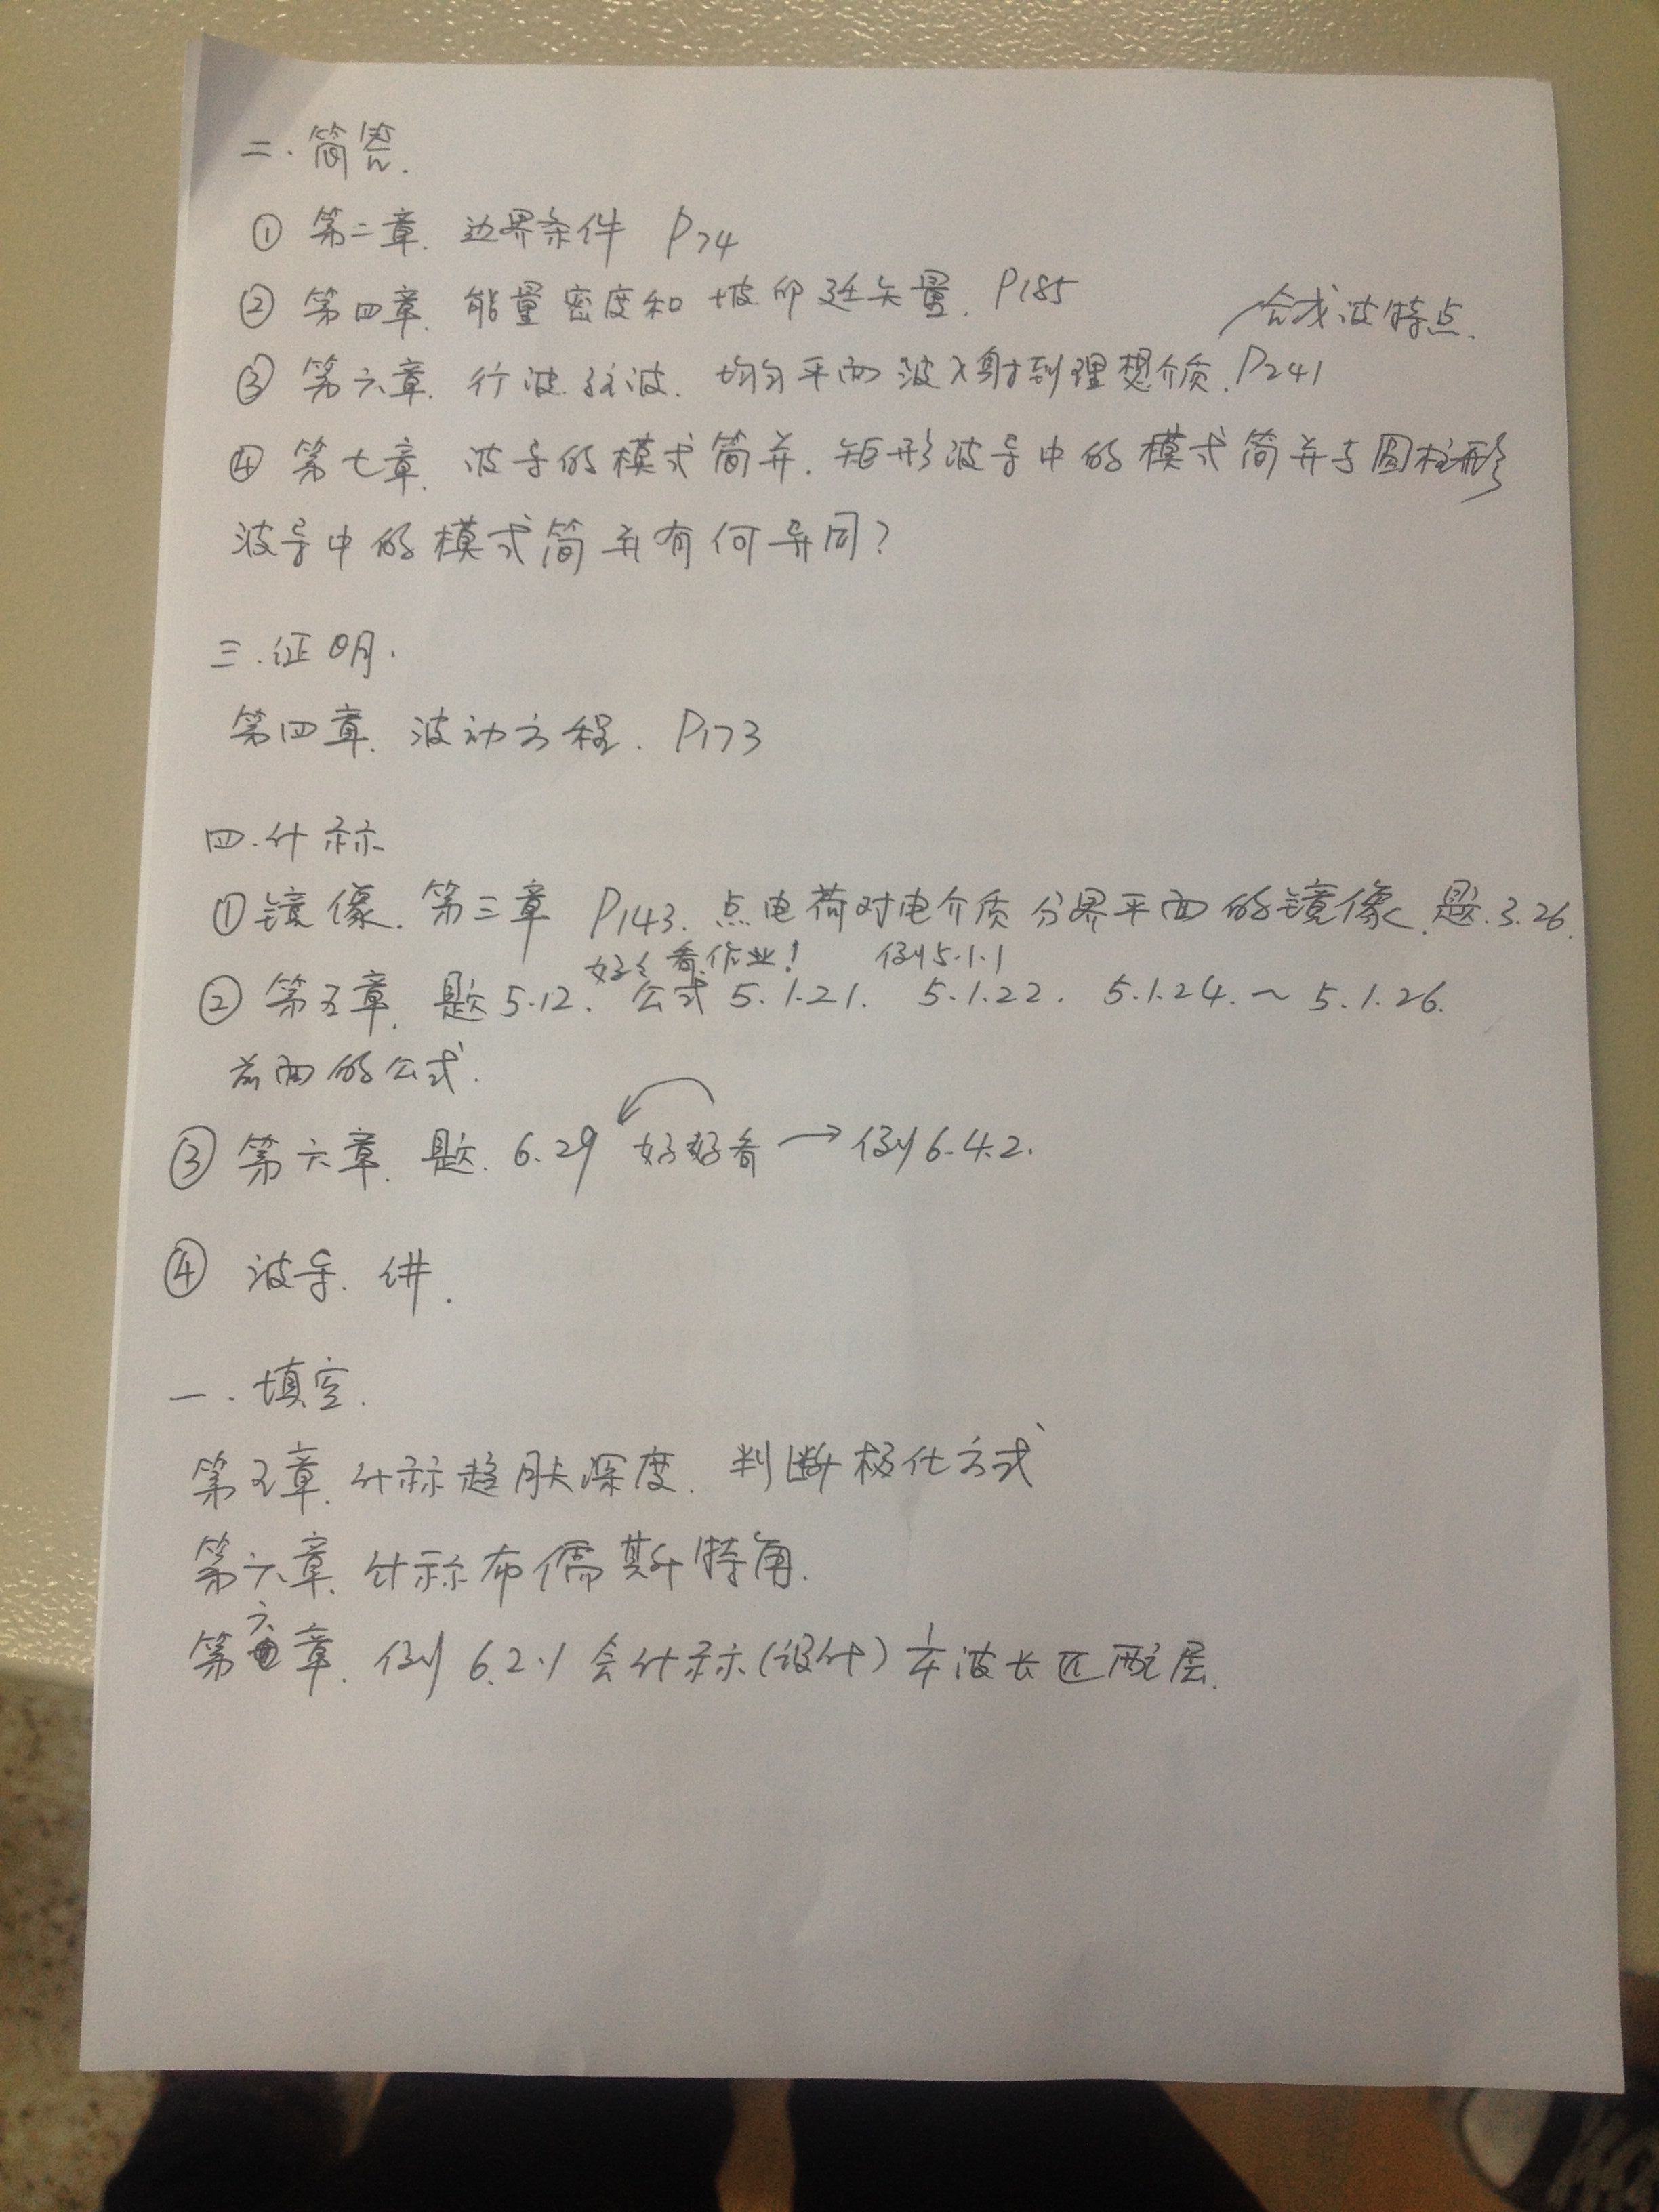 二.简答.
① 第二章. 边界条件 P74
② 第四章. 能量密度和坡印廷矢量. P185
合成波特点.
③ 第六章. 行波.驻波. 均匀平面波入射到理想介质. P241
④ 第七章. 波导的模式简并. 矩形波导中的模式简并与圆柱形
波导中的模式简并有何异同?
三.证明.
第四章. 波动方程. P173
四.计称
①镜像. 第三章 P143. 点电荷对电介质分界平面的镜像. 题.3.26.
好好看作业! 例5.1.1
② 第五章. 题5.12. 公式 5.1.21. 5.1.22. 5.1.24.~5.1.26.
前面的公式.
③ 第六章. 题. 6.29 好好看→例6.4.2.
④ 波导. 讲.
一.填空.
第五章. 计称趋肤深度. 判断极化方式
第六章. 计称布儒斯特角.
第六章. 例6.2.1 会计称(设计) 1/4波长匹配层.